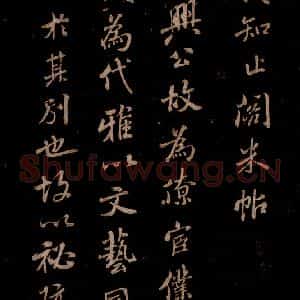 知止閣米帖
興公故為僚官僕
為代雅以文藝
於其別也故以祕
Shufawang.CN